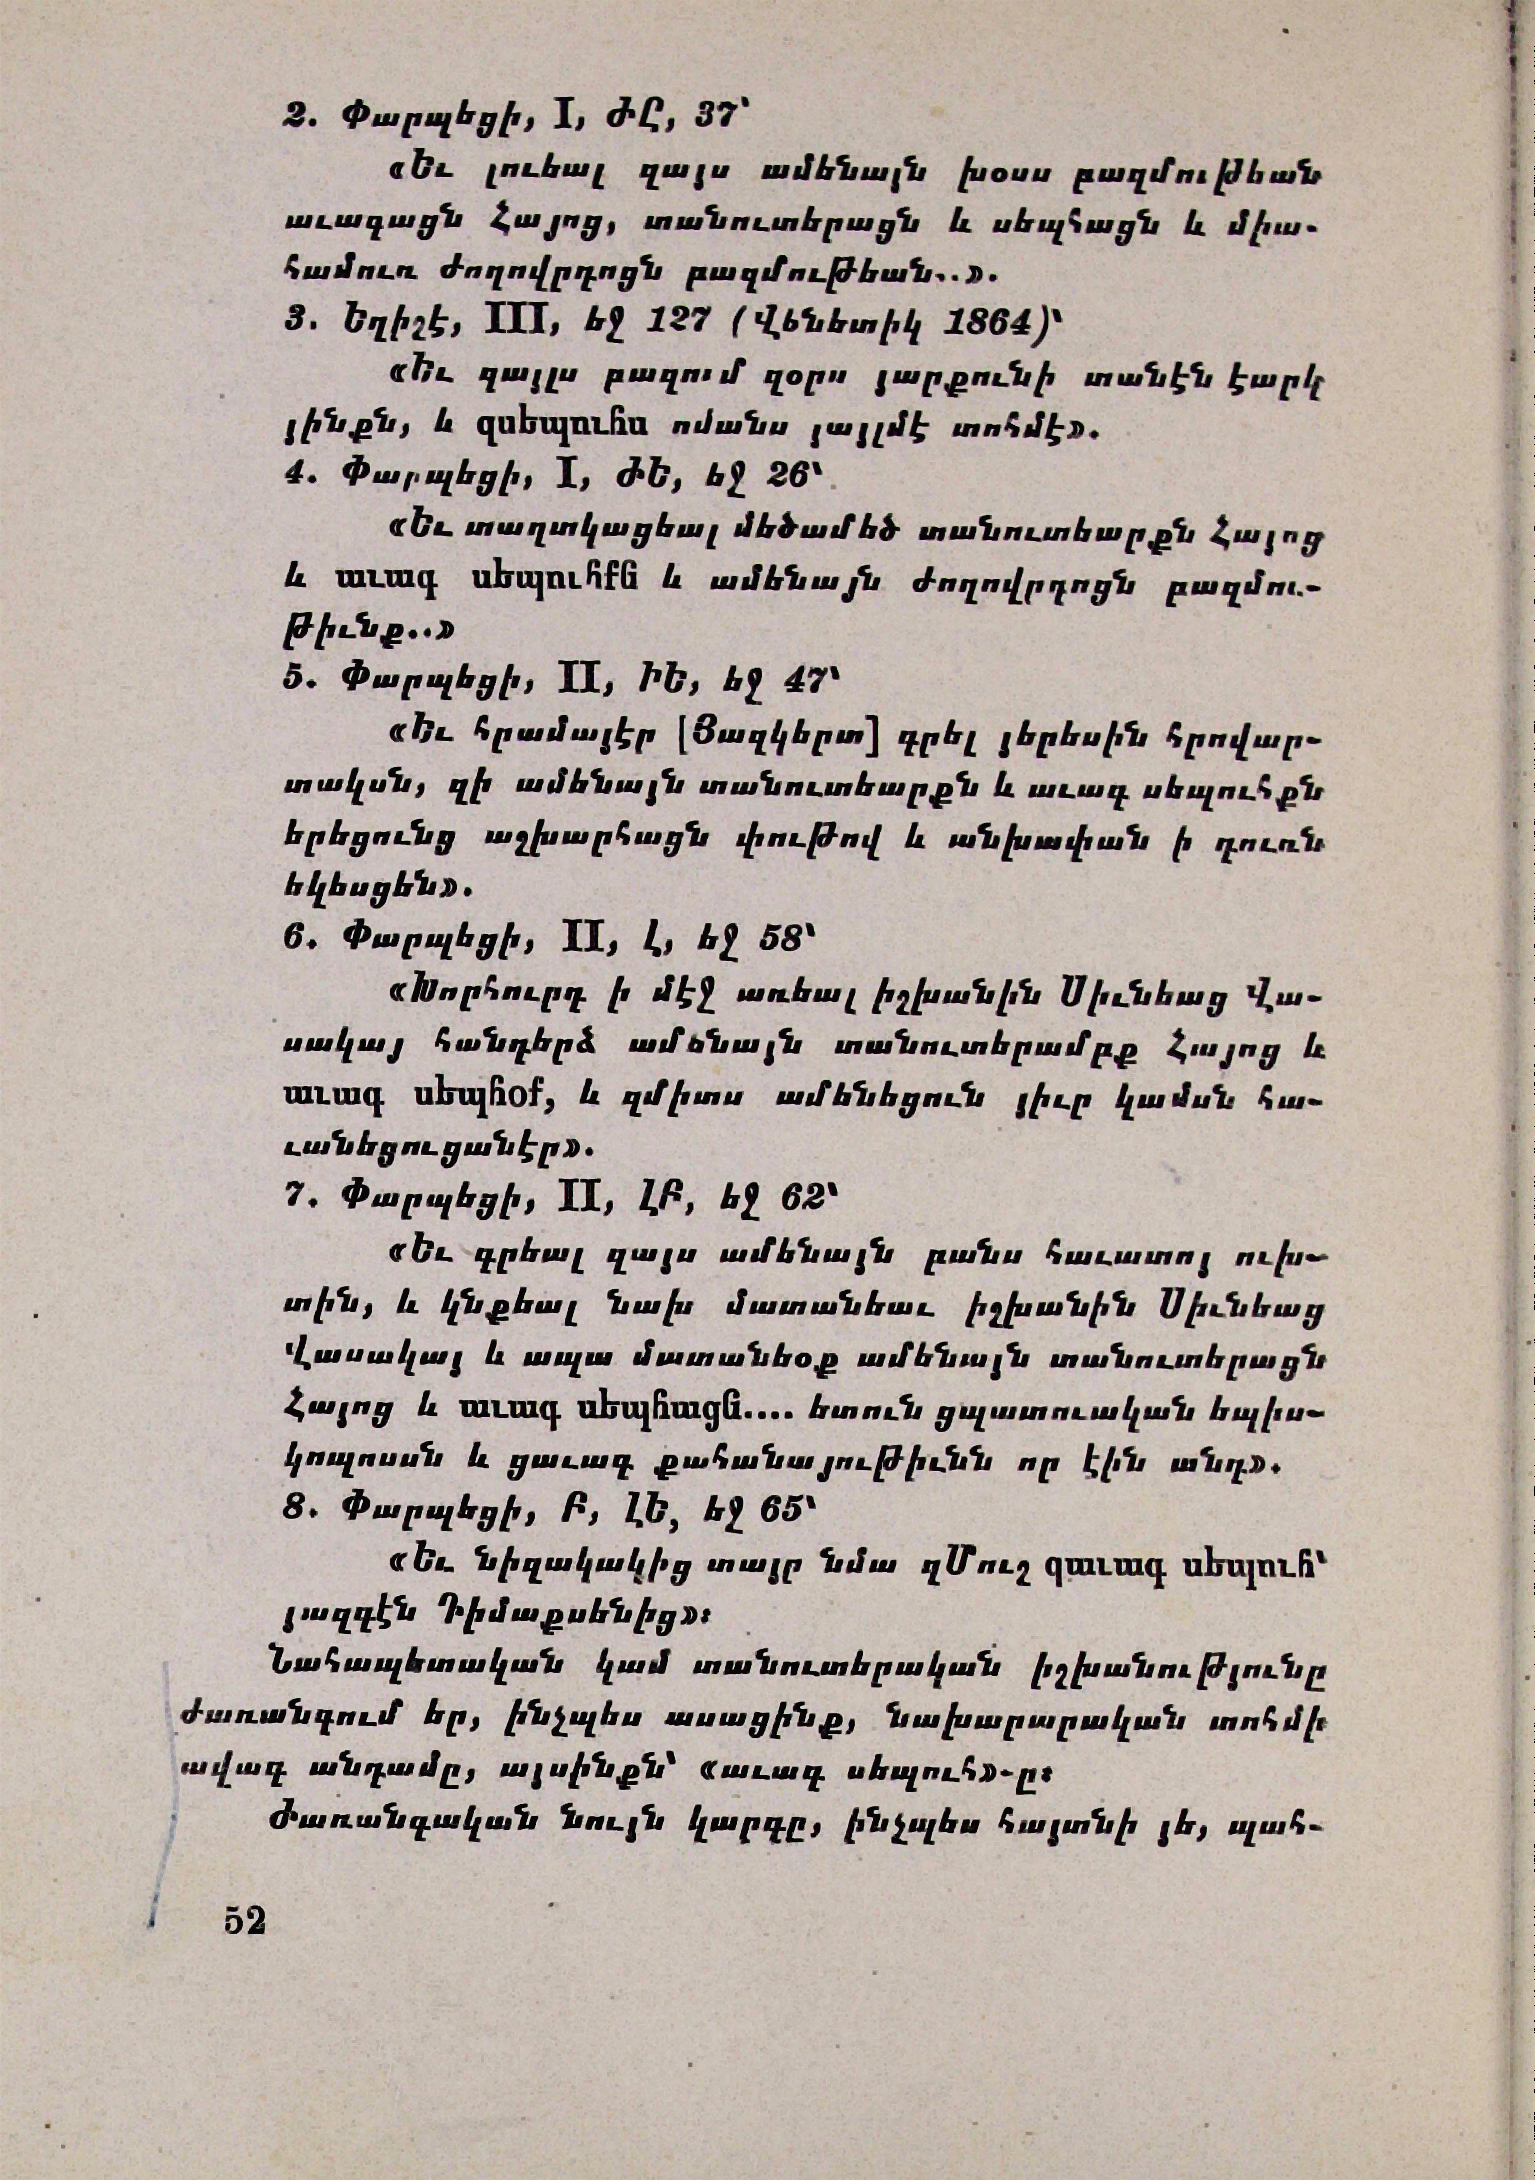 2. Փարպեցի, I, ԺԸ, 37՝
«Եւ լուեալ զայս ամենայն խօսս բազմութեան
աւագացն Հայոց, տանուտերացն և սեպհացն և միա-
համուռ ժողովրդոցն բազմութեան..».
3. Եղիշէ, III, եջ 127 (Վենետիկ 1864)՝
«Եւ զայլս բազում զօրս յարքունի տանէն էարկ
յինքն, և զսեպուհս ոմանս յայլմէ տոհմէ».
4. Փարպեցի, I, ԺԵ, եջ 26՝
«Եւ տաղտկացեալ մեծամեծ տանուտեարքն Հայոց
և աւագ սեպուհքն և ամենայն ժողովրդոցն բազմու-
թիւնք..»
5. Փարպեցի, II, ԻԵ, եջ 47՝
«Եւ հրամայէր [Յազկերտ] գրել յերեսին հրովար-
տակսն, զի ամենայն տանուտեարքն և աւագ սեպուհքն
երեցունց աշխարհացն փութով և անխափան ի դուռն
եկեսցեն».
6. Փարպեցի, II, Լ, եջ 58՝
«Խորհուրդ ի մէջ առեալ իշխանին Սիւնեաց Վա-
սակայ հանդերձ ամենայն տանուտերամբք Հայոց և
աւագ սեպհօք, և զմիտս ամենեցուն յիւր կամսն հա-
ւանեցուցանէր».
7. Փարպեցի, II, ԼԲ, եջ 62՝
«Եւ գրեալ զայս ամենայն բանս հաւատոյ ուխ-
տին, և կնքեալ նախ մատանեաւ իշխանին Սիւնեաց
Վասակայ և ապա մատանեօք ամենայն տանուտերացն
Հայոց և աւագ սեպհացն.... ետուն ցպատուական եպիս-
կոպոսսն և ցաւագ քահանայութիւնն որ էին անդ».
8. Փարպեցի, Բ, ԼԵ, եջ 65՝
«Եւ նիզակակից տայր նմա զՄուշ զաւագ սեպուհ՝
յազգէն Դիմաքսենից»։
Նահապետական կամ տանուտերական իշխանությունը
ժառանգում եր, ինչպես ասացինք, նախարարական տոհմի
ավագ անդամը, այսինքն՝ «աւագ սեպուհ»-ը։
Ժառանգական նույն կարգը, ինչպես հայտնի յե, պահ-
52